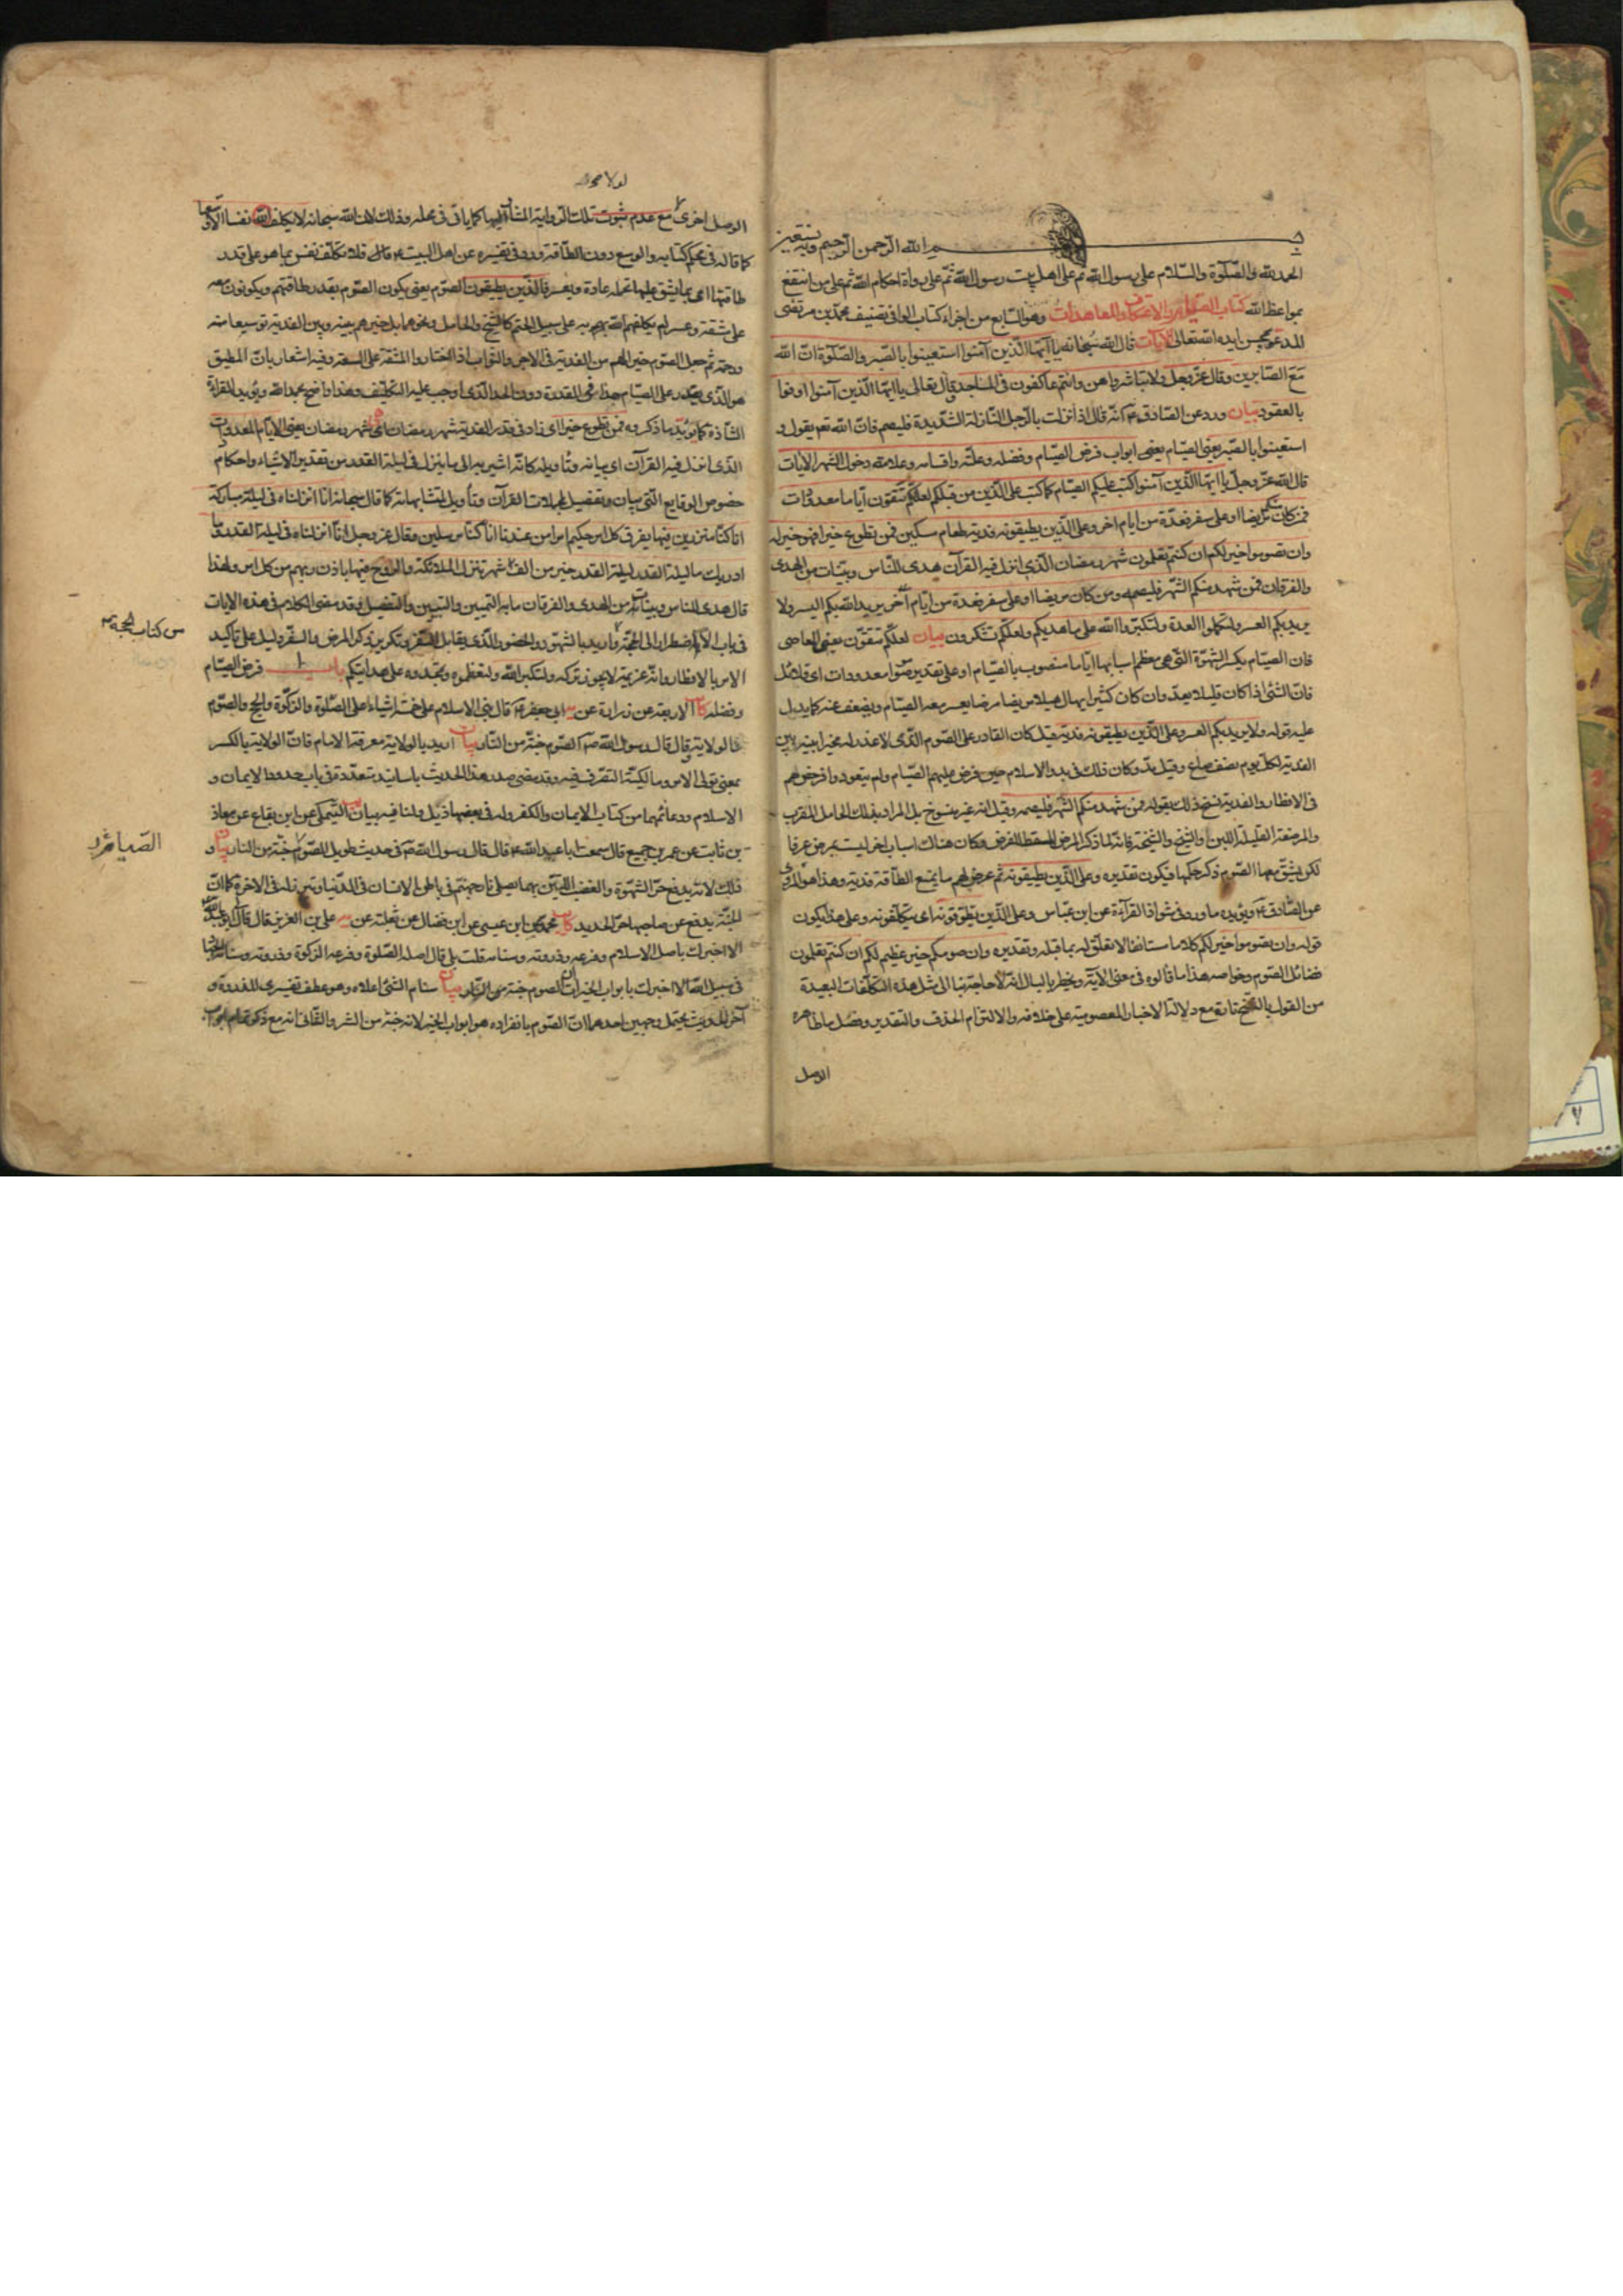 بسم الله الرحمن الرحيم وبه نستعين
الحمد لله والصلوة والسلام على رسول الله ثم على اهل بيت رسول الله ثم على رواة احكام الله ثم على من انتفع
بمواعظ الله كتاب الصيام والاعتكاف والمعاهدات وهو السابع من اجزاء كتاب الوافى تصنيف محمد بن مرتضى
المدعو بمحسن ايده الله تعالى الآيات قال الله سبحانه يا ايها الذين آمنوا استعينوا بالصبر والصلوة ان الله
مع الصابرين وقال عز وجل ولا تباشروهن وانتم عاكفون فى المساجد وقال تعالى يا ايها الذين آمنوا اوفوا
بالعقود بيان ورد عن الصادق ع انه قال اذا نزلت بالرجل النازلة الشديدة فليصم فان الله تعم يقول و
استعينوا بالصبر يعنى الصيام يعنى ابواب فرض الصيام وفضله وعلته واقسامه وعلامة دخول الشهر الآيات
قال الله عز وجل يا ايها الذين آمنوا كتب عليكم الصيام كما كتب على الذين من قبلكم لعلكم تتقون اياما معدودات
فمن كان منكم مريضا او على سفر فعدة من ايام اخر وعلى الذين يطيقونه فدية طعام مسكين فمن تطوع خيرا فهو خير له
وان تصوموا خير لكم ان كنتم تعلمون شهر رمضان الذى انزل فيه القرآن هدى للناس وبينات من الهدى
والفرقان فمن شهد منكم الشهر فليصمه ومن كان مريضا او على سفر فعدة من ايام اخر يريد الله بكم اليسر ولا
يريد بكم العسر ولتكملوا العدة ولتكبروا الله على ما هديكم ولعلكم تشكرون بيان لعلكم تتقون يعنى المعاصى
فان الصيام يكسر الشهوة التى هى معظم اسبابها اياما منصوب بالصيام او على تقدير صوموا معدودات اى قلائل
فان الشئ اذا كان قليلا يعد وان كان كثيرا يهال هيلا مريضا مرضا يعسر معه الصيام ويضعف عنه كما يدل
عليه قوله ولا يريد بكم العسر وعلى الذين يطيقونه فدية قيل كان القادر على الصوم الذى لا عذر له مخيرا بينه وبين
الفدية لكل يوم نصف صاع وقيل مد وكان ذلك فى بدو الاسلام حين فرض عليهم الصيام ولم يتعودوا فرخص لهم
فى الافطار والفدية ثم نسخ ذلك بقوله فمن شهد منكم الشهر فليصمه وقيل انه غير منسوخ بل المراد بذلك الحامل المقرب
والمرضعة القليلة اللبن والشيخ والشيخة فانه لما ذكر المرض المسقط للفرض وكان هناك اسباب اخر ليست بمرض عرفا
لكن يشق معها الصوم ذكر حكمها فيكون تقديره وعلى الذين يطيقونه ثم عرض لهم ما يمنع الطاقة فدية وهذا هو المروى
عن الصادق ع ويؤيده ما ورد فى شواذ القراءة عن ابن عباس وعلى الذين يطوقونه اى يتكلفونه وعلى هذا يكون
قوله وان تصوموا خير لكم كلاما مستانفا لا تعلق له بما قبله وتقديره وان صومكم خير عظيم لكم ان كنتم تعلمون
فضائل الصوم وخواصه هذا ما قالوه فى معنى الآية ويخطر بالبال انه لا حاجة بنا الى مثل هذه التكلفات البعيدة
من القول بالنسخ تارة مع دلالة الاخبار المعصومية على خلافه والالتزام الحذف والتقدير وفصل ما ظاهره
الوصل
الوصل اخرى مع عدم ثبوت تلك الرواية المشار اليها كما ياتى فى محله وذلك لان الله سبحانه لا يكلف الله نفسا الا وسعها
كما قاله فى محكم كتابه والوسع دون الطاقة ورد فى تفسيره عن اهل البيت ع قال فلا تكلف نفس بما هو على قدر
طاقتها اى بما يشق عليها تحمله عادة ويعسر فالذين يطيقون الصوم يعنى يكون الصوم بقدر طاقتهم ويكونون معه
على مشقة وعسر لم يكلفهم الله به على سبيل الحتم كالشيخ والحامل ونحوهما بل خيرهم بينه وبين الفدية توسيعا منه
ورحمة ثم جعل الصوم خيرا لهم من الفدية فى الاجر والثواب اذا اختاروا المشقة على السعة وفيه اشعار بان المطيق
هو الذى يقدر على الصيام جدا فى القدرة دون الحد الذى اوجب عليه التكليف وهذا واضح بحمد الله ويؤيد القراءة
الشاذة كما يؤيد ما ذكروه فمن تطوع خيرا اى زاد فى قدر الفدية شهر رمضان اى شهر رمضان يعنى الايام المعدودات
الذى انزل فيه القرآن اى بيانه وتأويله كانه اشير به الى ما ينزل فى ليلة القدر من تقدير الاشياء واحكام
خصوص الوقايع التى بيان وتفصيل لمجملات القرآن وتأويل لمتشابهاته كما قال سبحانه انا انزلناه فى ليلة مباركة
انا كنا منذرين فيها يفرق كل امر حكيم امرا من عندنا انا كنا مرسلين وقال عز وجل انا انزلناه فى ليلة القدر وما
ادريك ما ليلة القدر ليلة القدر خير من الف شهر تنزل الملائكة والروح فيها باذن ربهم من كل امر ولهذا
قال هدى للناس وبينات من الهدى والفرقان ما به التمييز والتبيين والتفصيل وقد مضى الكلام فى هذه الايات
فى باب الاضطرار الى الحجة واريد بالشهود الحضور الذى يقابل السفر وتكرير ذكر المرض والسفر دليل على تأكيد
الامر بالافطار وانه عزيمة لا يجوز تركه ولتكبروا الله ولتعظموه وتمجدوه على هدايتكم باب ١ فرض الصيام
وفضله كا الاربعة عن زرارة عن ابى جعفر ع قال بنى الاسلام على خمسة اشياء على الصلوة والزكوة والحج والصوم
والولاية وقال قال رسول الله ص الصوم جنة من النار بيان اريد بالولاية معرفة الامام فان الولاية بالكسر
بمعنى تولى الامر ومالكية التصرف فيه وقد مضى صدر هذا الحديث باسانيد متعددة فى باب حدود الايمان و
الاسلام ودعائمهما من كتاب الايمان والكفر وله فى بعضها ذيل ولنا فيه بيان التيملى عن ابن بقاع عن معاذ
بن ثابت عن عمرو بن جميع قال سمعت ابا عبد الله ع قال قال رسول الله ص فى حديث طويل الصوم جنة من النار بيان
ذلك لانه يدفع حر الشهوة والغضب اللتين بهما يصلى نار جهنم فى باطن الانسان فى الدنيا وتبرز له فى الاخرة كما ان
الجنة يدفع عن صاحبها حر الحديد كا محمد عن ابن عيسى عن ابن فضال عن ثعلبة عن على بن العزيز قال قال لى ابو عبد الله
الا اخبرك باصل الاسلام وفرعه وذروته وسنامه قلت بلى قال اصله الصلوة وفرعه الزكوة وذروته وسنامه الجهاد
فى سبيل الله الا اخبرك بابواب الخير ان الصوم جنة من النار بيان سنام الشئ اعلاه وهو عطف تفسيرى للذروة و
آخر الحديث يحتمل وجهين احدهما ان الصوم بانفراده هو ابواب الخير لانه جنة من الشر والثانى انه مع ذكر تمام
من كتاب الحجة